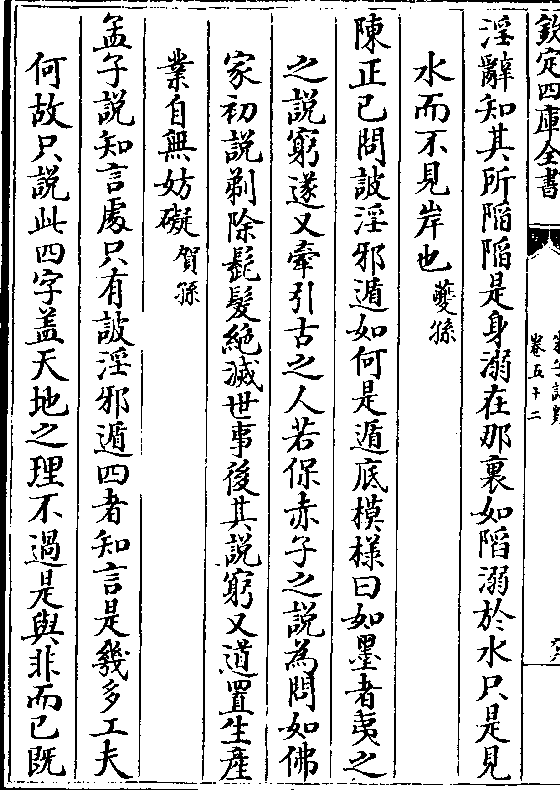 欽定四庫全書
卷五十二
淫辭知其所陷陷是身溺在那裏如陷溺於水只是見
水而不見岸也夔孫
陳正已問詖淫邪遁如何是遁底模様曰如墨者夷之
之説窮遂又牽引古之人若保赤子之説為問如佛
家初説剃除髭髮絶滅世事後其説窮又道置生産
業自無妨礙賀孫
孟子説知言處只有詖淫邪遁四者知言是幾多工夫
何故只説此四字蓋天地之理不過是與非而已既